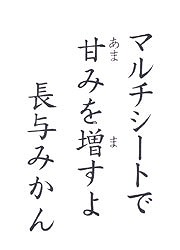 マルチシートで
甘みを増すよ
長与みかん